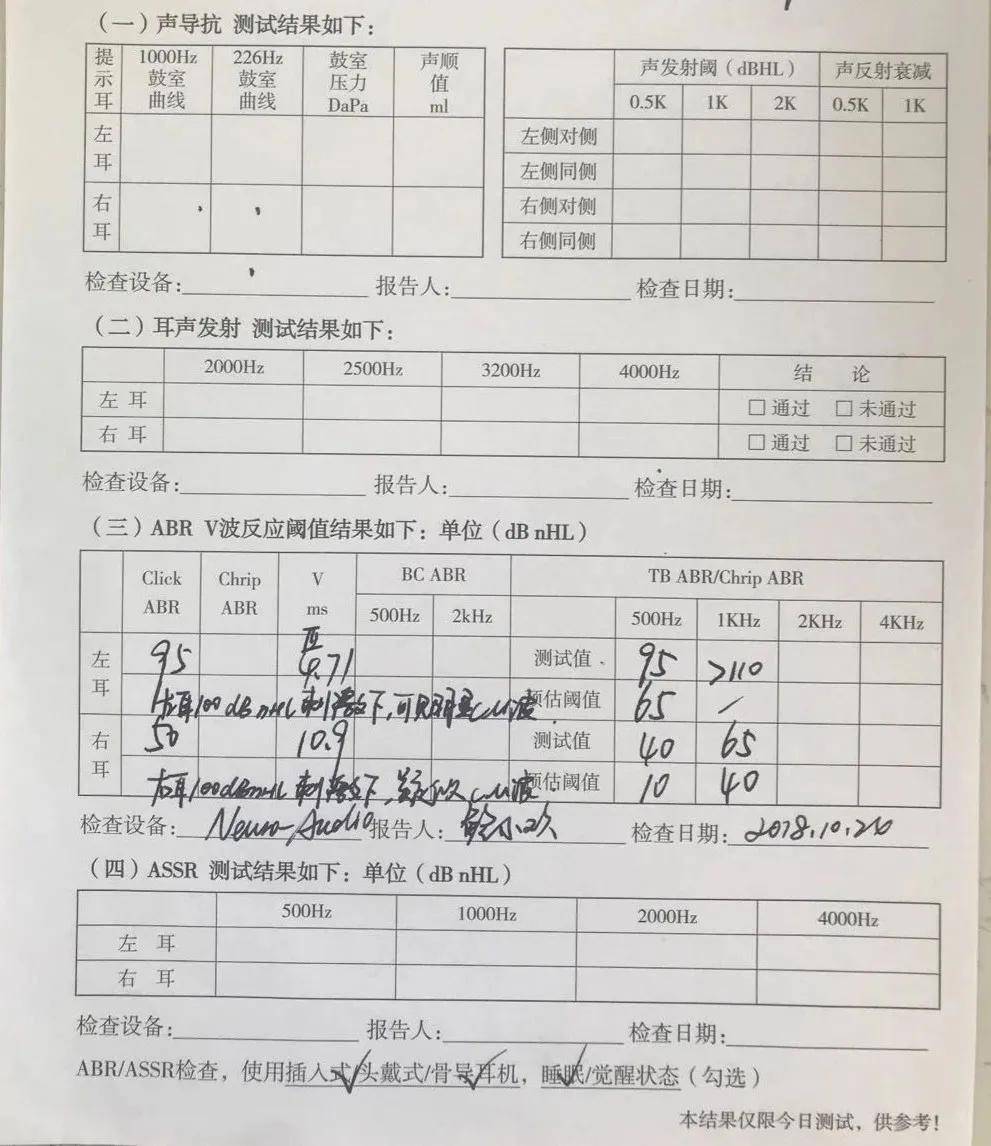 （一）声导抗 测试结果如下：
提示耳 1000Hz鼓室曲线 226Hz鼓室曲线 鼓室压力DaPa 声顺值ml
左耳
右耳
声发射阈（dBHL） 声反射衰减
0.5K 1K 2K 0.5K 1K
左侧对侧
左侧同侧
右侧对侧
右侧同侧
检查设备: 报告人: 检查日期:
（二）耳声发射 测试结果如下：
2000Hz 2500Hz 3200Hz 4000Hz 结 论
左 耳 □ 通过 □ 未通过
右 耳 □ 通过 □ 未通过
检查设备: 报告人: 检查日期:
（三）ABR V波反应阈值结果如下：单位（dB nHL）
Click ABR Chrip ABR V ms BC ABR TB ABR/Chrip ABR
500Hz 2kHz 500Hz 1KHz 2KHz 4KHz
左耳 95 Ⅲ 4.71 测试值 95 >110
左耳100dBnHL刺激下,可见明显CM波 预估阈值 65 /
右耳 50 10.9 测试值 40 65
右耳100dBnHL刺激下, CM波 预估阈值 10 40
检查设备: Neuro-Audio 报告人: 检查日期: 2018.10.26
（四）ASSR 测试结果如下：单位（dB nHL）
500Hz 1000Hz 2000Hz 4000Hz
左 耳
右 耳
检查设备: 报告人: 检查日期:
ABR/ASSR检查，使用插入式√/头戴式/骨导耳机√，睡眠√/觉醒状态（勾选）
本结果仅限今日测试，供参考!